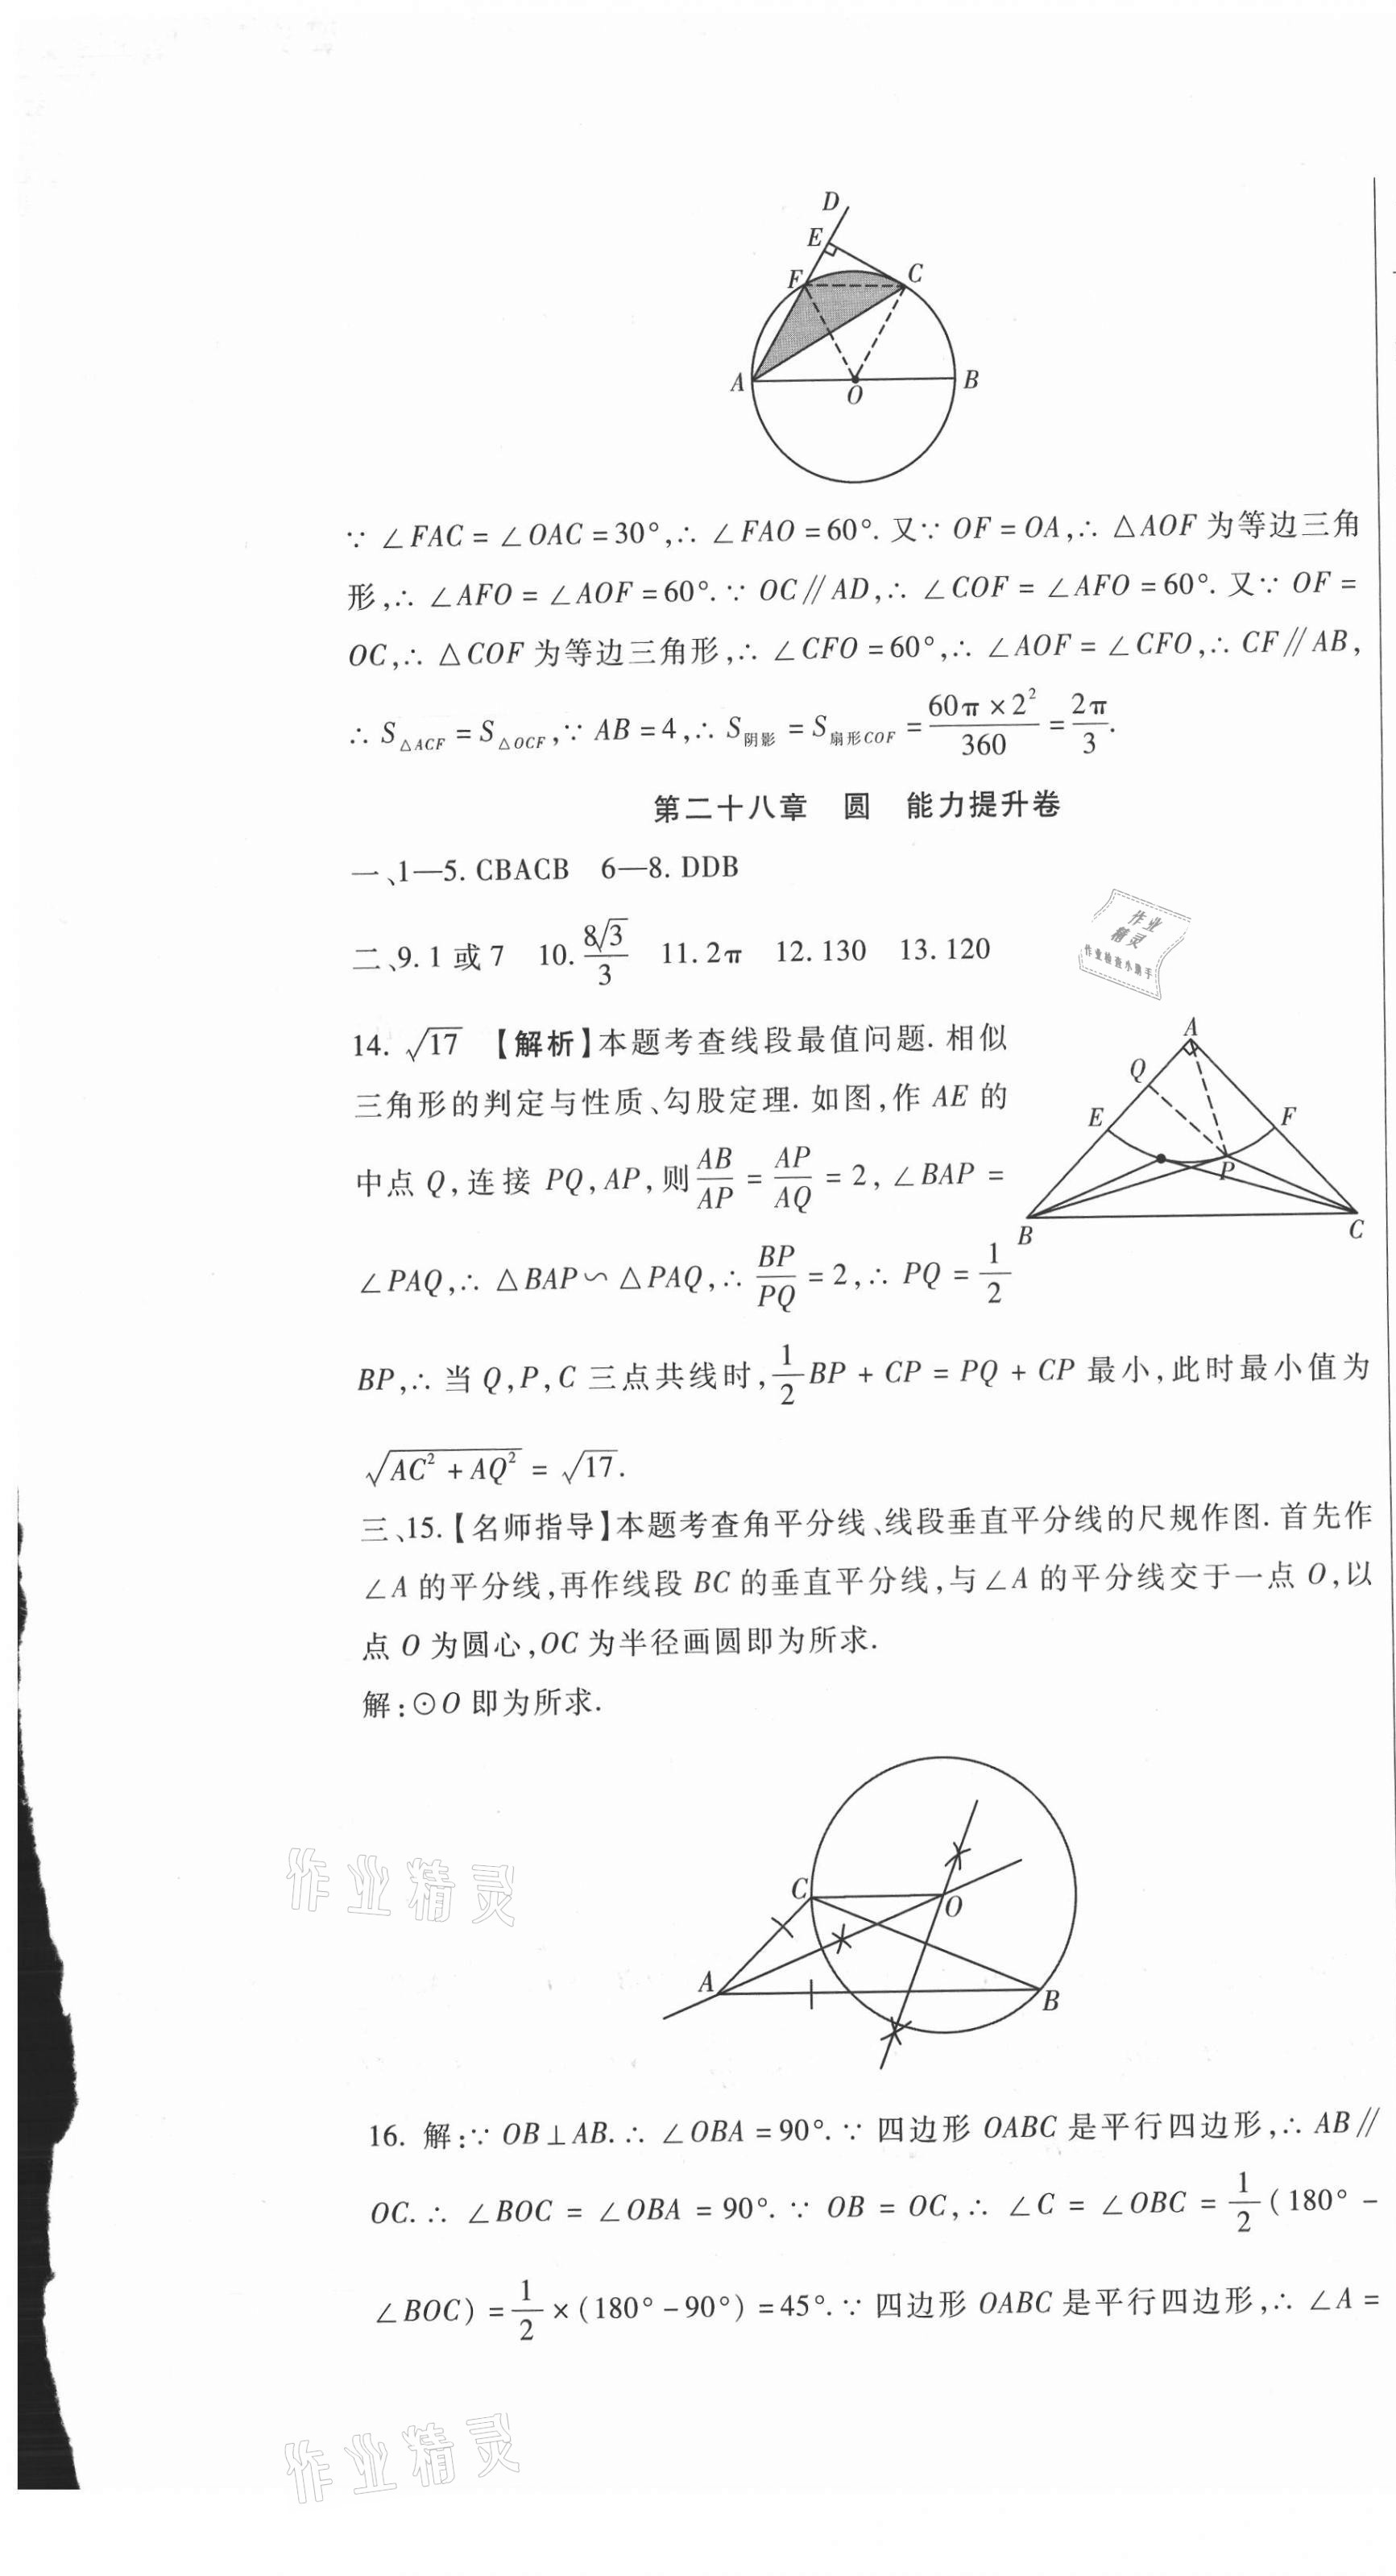 D
E
F
C
A
O
B
∵ ∠FAC = ∠OAC = 30°,∴ ∠FAO = 60°. 又∵ OF = OA,∴ △AOF 为等边三角
形,∴ ∠AFO = ∠AOF = 60°. ∵ OC∥AD,∴ ∠COF = ∠AFO = 60°. 又∵ OF =
OC,∴ △COF 为等边三角形,∴ ∠CFO = 60°,∴ ∠AOF = ∠CFO,∴ CF∥AB,
∴ S△ACF = S△OCF,∵ AB = 4,∴ S阴影 = S扇形COF = 60π × 2²/360 = 2π/3.
第二十八章 圆 能力提升卷
一、1—5. CBACB 6—8. DDB
二、9. 1 或 7 10. 8√3/3 11. 2π 12. 130 13. 120
作业
精灵
作业检查小助手
14. √17 【解析】本题考查线段最值问题. 相似
三角形的判定与性质、勾股定理. 如图,作 AE 的
中点 Q,连接 PQ,AP,则 AB/AP = AP/AQ = 2,∠BAP =
∠PAQ,∴ △BAP∽△PAQ,∴ BP/PQ = 2,∴ PQ = 1/2
A
Q
E
F
P
B
C
BP,∴ 当 Q,P,C 三点共线时,1/2 BP + CP = PQ + CP 最小,此时最小值为
√(AC² + AQ²) = √17.
三、15.【名师指导】本题考查角平分线、线段垂直平分线的尺规作图. 首先作
∠A 的平分线,再作线段 BC 的垂直平分线,与∠A 的平分线交于一点 O,以
点 O 为圆心,OC 为半径画圆即为所求.
解:⊙O 即为所求.
C
O
A
B
作业精灵
16. 解:∵ OB⊥AB. ∴ ∠OBA = 90°. ∵ 四边形 OABC 是平行四边形,∴ AB∥
OC. ∴ ∠BOC = ∠OBA = 90°. ∵ OB = OC,∴ ∠C = ∠OBC = 1/2 (180° -
∠BOC) = 1/2 × (180° - 90°) = 45°. ∵ 四边形 OABC 是平行四边形,∴ ∠A =
作业精灵